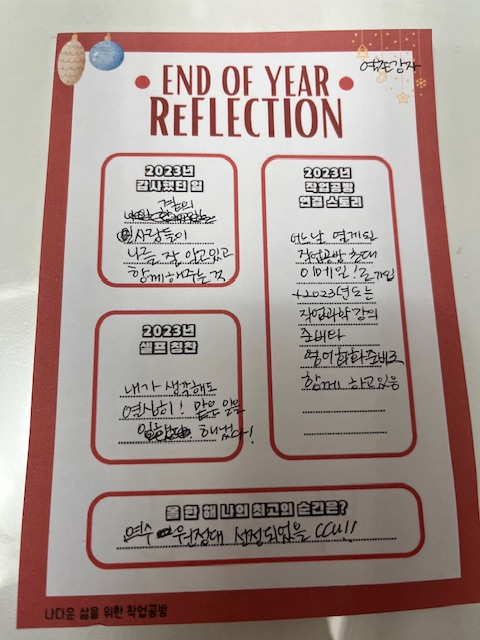 END OF YEAR
REFLECTION
2023년
감사했던 일
곁의
사람들이
나를 잘 알고 있고
함께해주는 것
2023년
작업공방
연결 스토리
어느날 열게된
작업공방 초대
이메일!로 가입
+2023년도는
작업과학 강의
준비와
영어회화준비로
함께 하고있음
2023년
셀프 칭찬
내가 생각해도
열심히! 많은 일을
해냈다!
올 한 해 나의 최고의 순간은?
연수 원정대 선정되었을
나다운 삶을 위한 작업공방